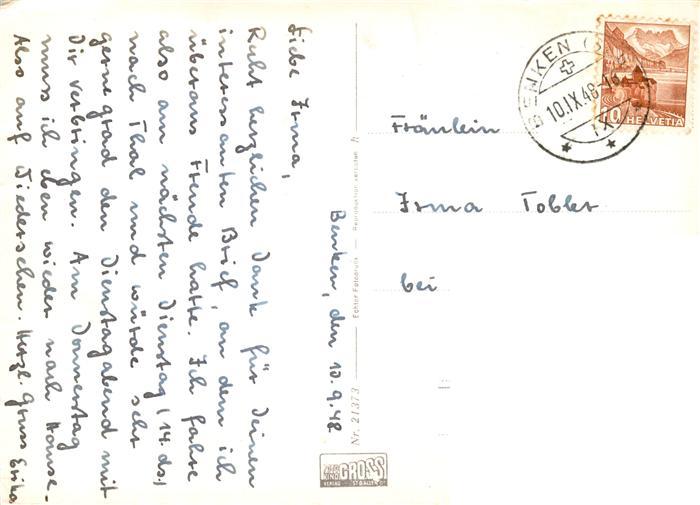 Benken, den 10.9.48
Liebe Irma,
Recht herzlichen Dank für Deinen
interessanten Brief, an dem ich
überaus Freude hatte. Ich fahre
also am nächsten Dienstag (14. ds.)
nach Thal und würde sehr
gerne grad den Dienstagabend mit
Dir verbringen. Am Donnerstag
muss ich eben wieder nach Hause.
Also auf Wiedersehen. Herzl. Gruss Erika
Nr. 21373
Echter Fotogruss
Reproduktion verboten
GROSS
VERLAG ST. GALLEN
BENKEN
10.IX.48-16
10
HELVETIA
Fräulein
Irma Tobler
bei